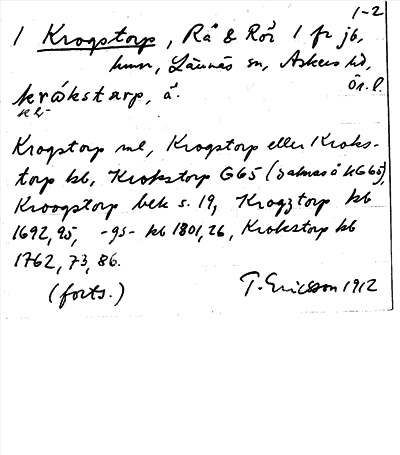 1-2
1 Krogstorp, Rå & Rör 1 fr jb,
hmn, Lännäs sn, Askers hd,
Ör. l.
kråkstarp, å.
Krogstorp ml, Krogstorp eller Kroks-
torp kb, Krokstorp G65 (saknas å kG65),
Kroogstorp bek s. 19, Krogztorp kb
1692, 95, -gs- kb 1801, 26, Krokstorp kb
1762, 73, 86.
(forts.) T. Ericsson 1912